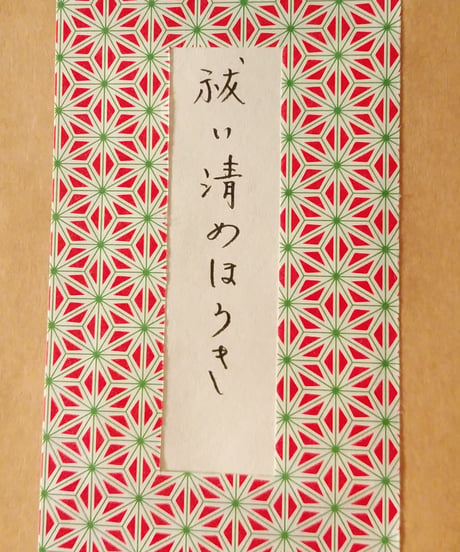 祓い清めほうき